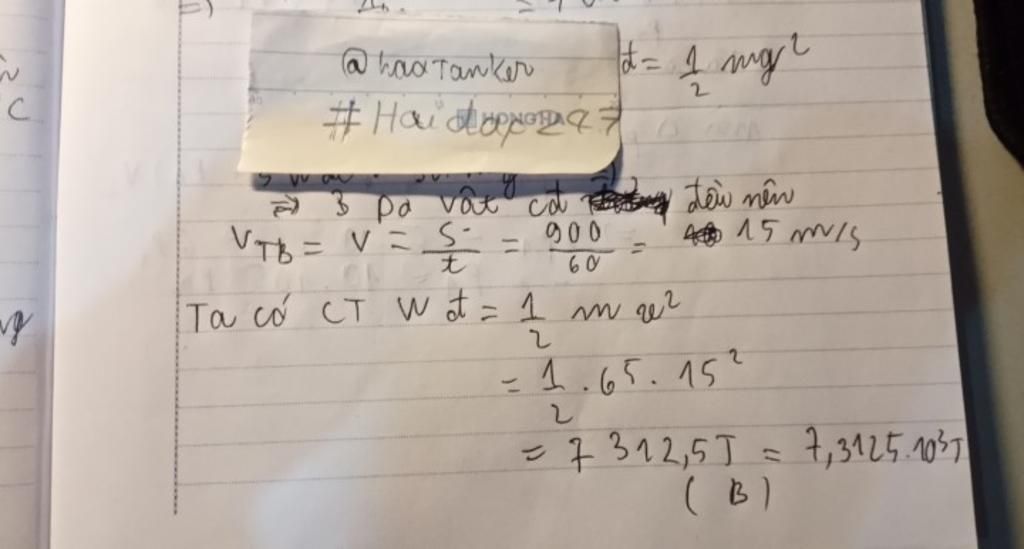 =)
@haoTanker
đ = 1/2 mg²
# Hoidap247
HONGHA
=> 3 Do vật cđ đều nên
V_TB = V = S/t = 900/60 = 15 m/s
Ta có CT Wđ = 1/2 m v²
= 1/2 . 65 . 15²
= 7 312,5J = 7,3125.10³J
( B )